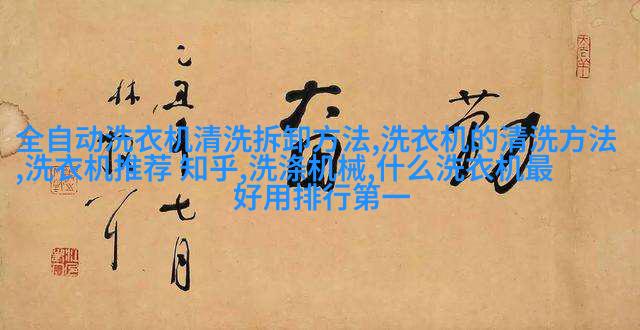 全自动洗衣机清洗拆卸方法,洗衣机的清洗方法
,洗衣机推荐 知乎,洗涤机械,什么洗衣机最
好用排行第一
勤
乙丑年七月
林散